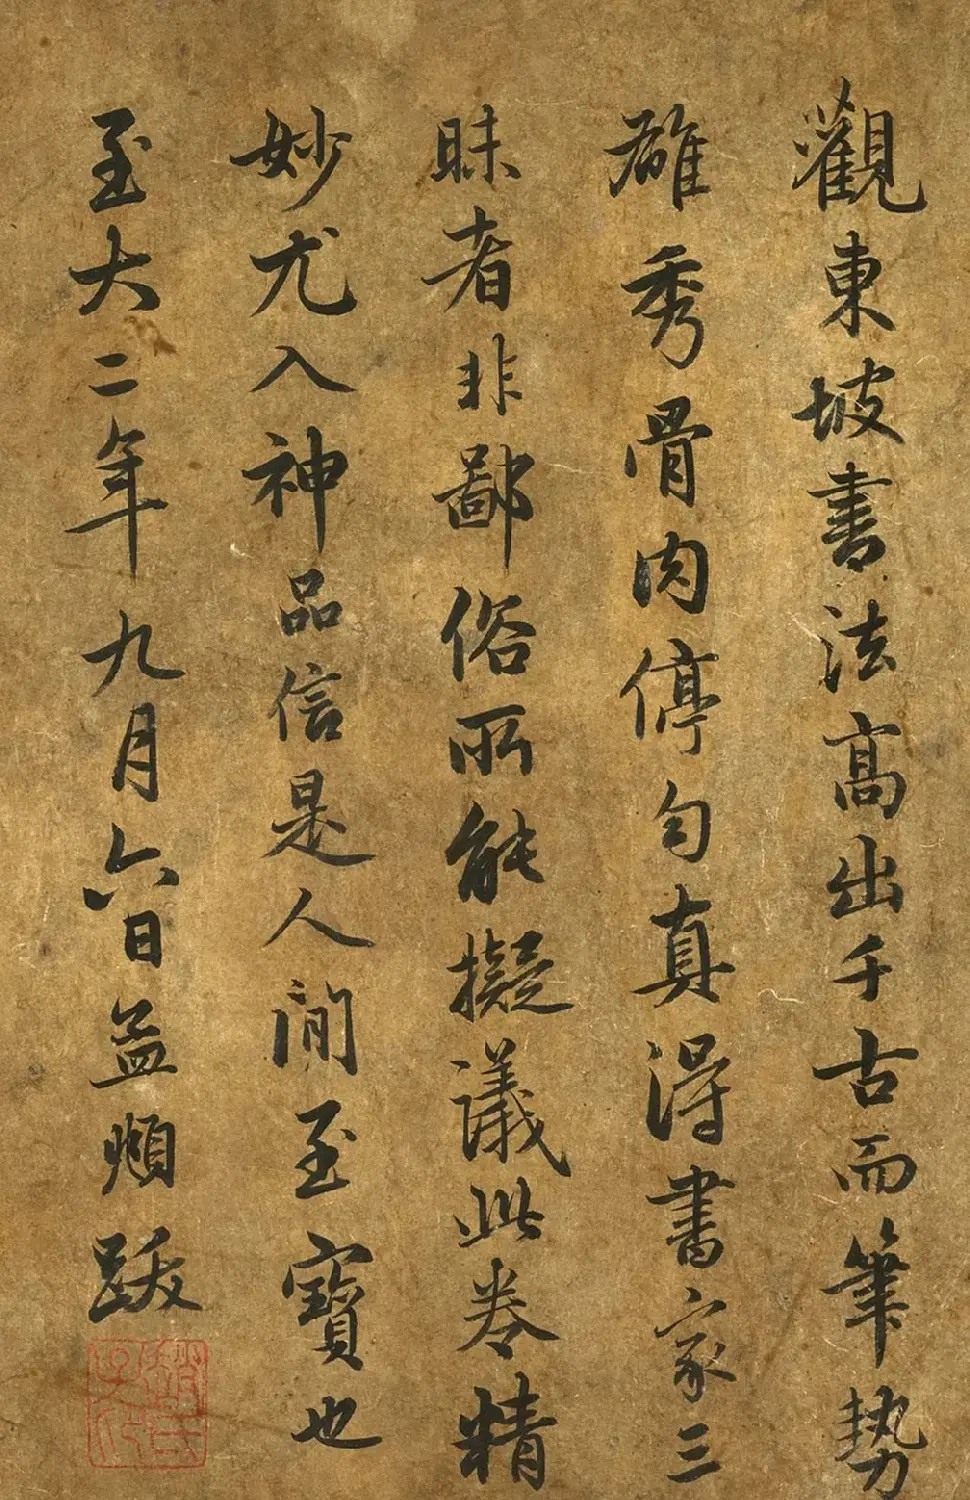 觀東坡書法高出千古而筆勢
雄秀骨肉停勻真得書家三
昧者非鄙俗所能擬議此卷精
妙尤入神品信是人間至寶也
至大二年九月六日孟頫跋
趙氏子昂